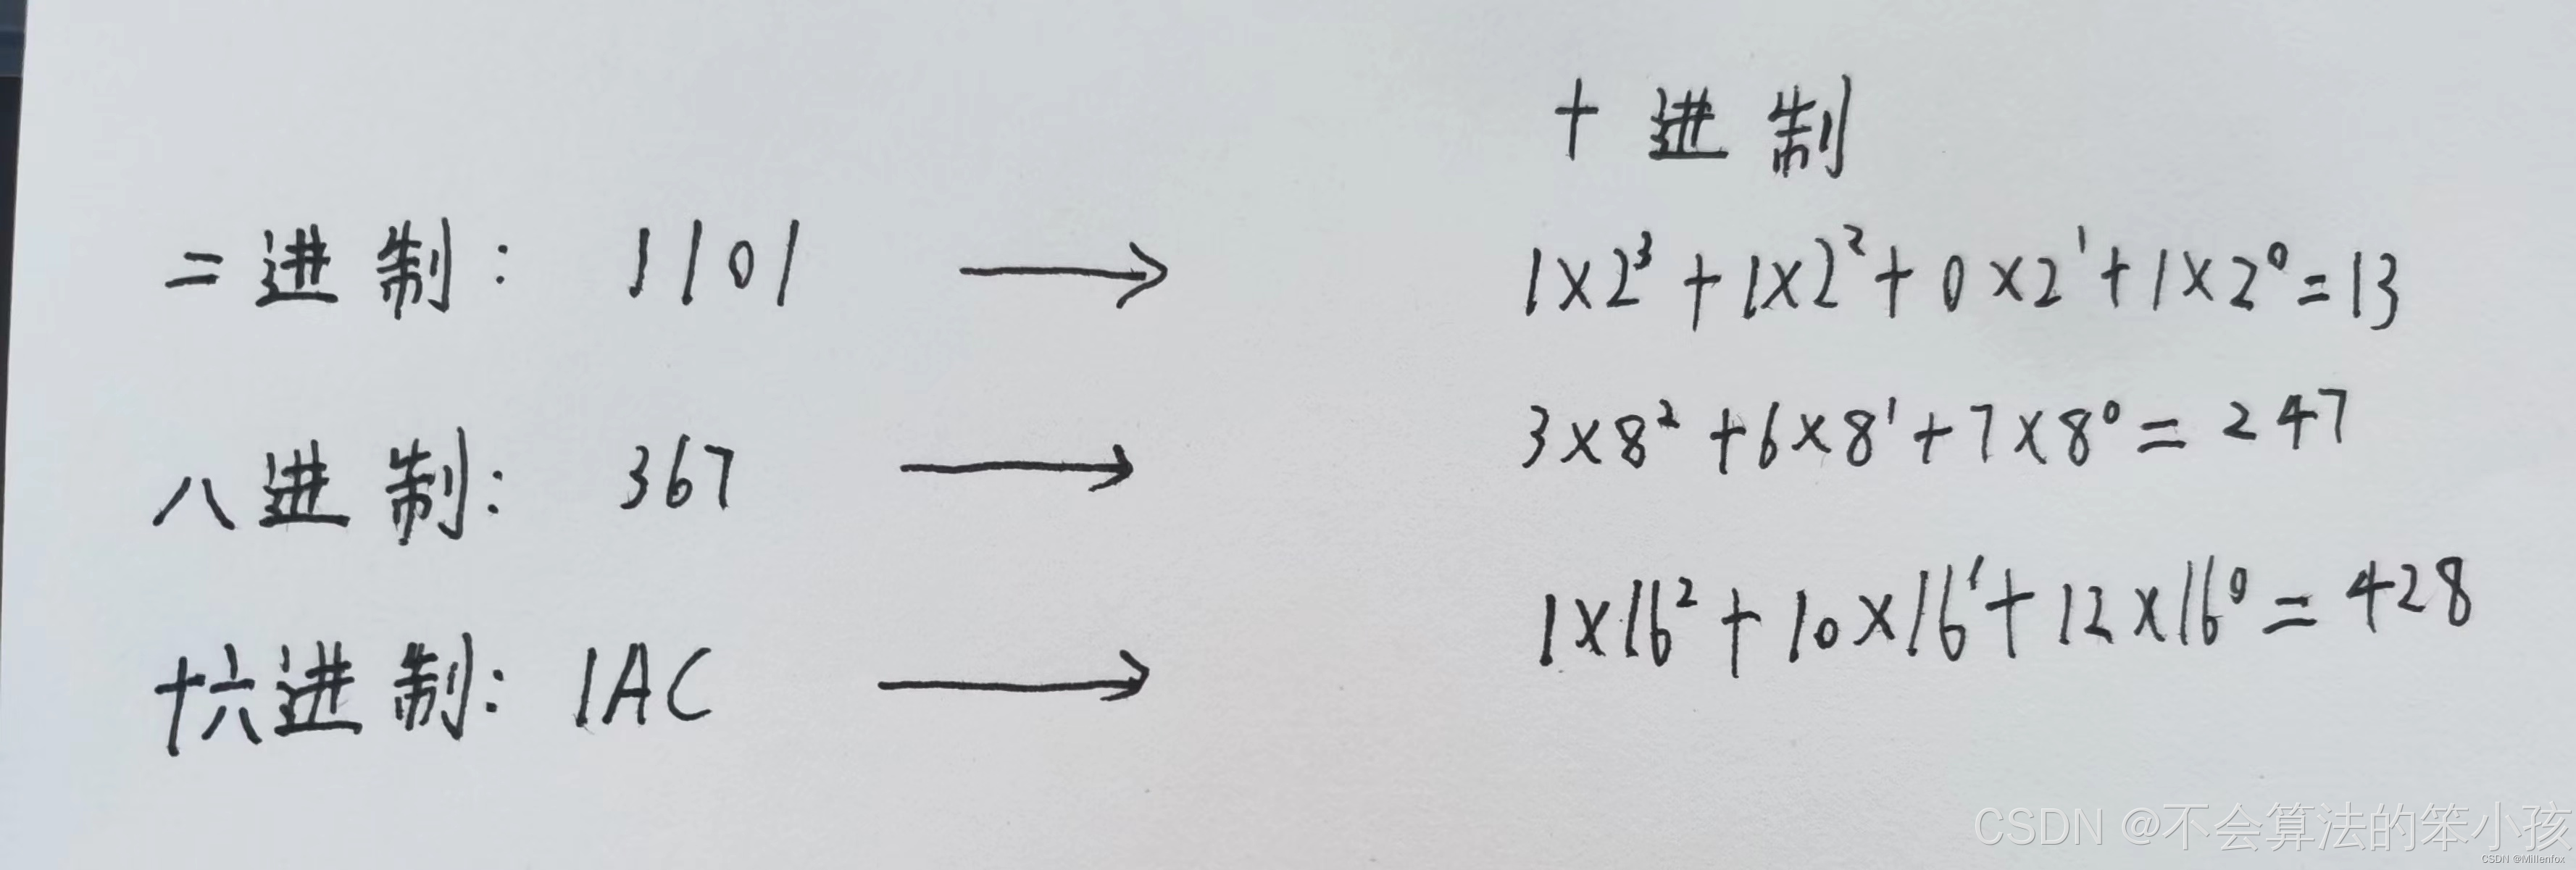 十进制
二进制: 1101 → 1×2³+1×2²+0×2¹+1×2⁰=13
八进制: 367 → 3×8²+6×8¹+7×8⁰=247
十六进制: 1AC → 1×16²+10×16¹+12×16⁰=428
CSDN @不会算法的笨小孩
CSDN @Millenfox